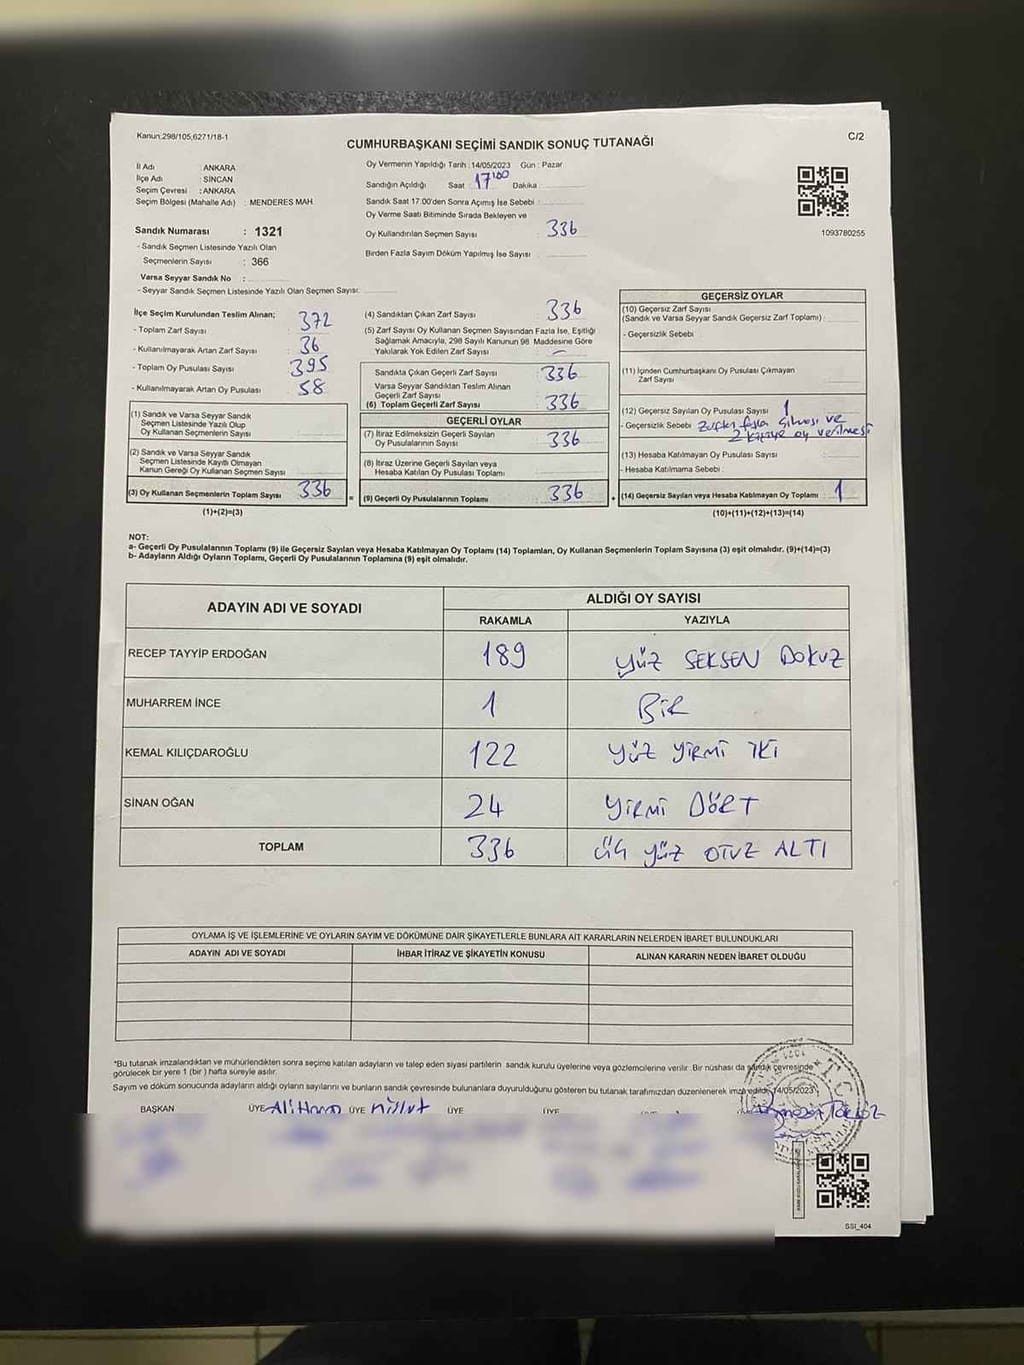 Kanun:298/105,6271/18-1
C/2
CUMHURBAŞKANI SEÇİMİ SANDIK SONUÇ TUTANAĞI
İl Adı : ANKARA
İlçe Adı : SİNCAN
Seçim Çevresi : ANKARA
Seçim Bölgesi (Mahalle Adı) : MENDERES MAH.
Sandık Numarası : 1321
- Sandık Seçmen Listesinde Yazılı Olan
Seçmenlerin Sayısı : 366
Varsa Seyyar Sandık No :
- Seyyar Sandık Seçmen Listesinde Yazılı Olan Seçmen Sayısı:
Oy Vermenin Yapıldığı Tarih :14/05/2023 Gün : Pazar
Sandığın Açıldığı Saat 17:00 Dakika
Sandık Saat 17.00'den Sonra Açımış İse Sebebi :
Oy Verme Saati Bitiminde Sırada Bekleyen ve
Oy Kullandırılan Seçmen Sayısı : 336
Birden Fazla Sayım Döküm Yapılmış İse Sayısı :
1093780255
İlçe Seçim Kurulundan Teslim Alınan; 372
- Toplam Zarf Sayısı
- Kullanılmayarak Artan Zarf Sayısı 36
- Toplam Oy Pusulası Sayısı 395
- Kullanılmayarak Artan Oy Pusulası 58
(1) Sandık ve Varsa Seyyar Sandık
Seçmen Listesinde Yazılı Olup
Oy Kullanan Seçmenlerin Sayısı
(2) Sandık ve Varsa Seyyar Sandık
Seçmen Listesinde Kayıtlı Olmayan
Kanun Gereği Oy Kullanan Seçmen Sayısı
(3) Oy Kullanan Seçmenlerin Toplam Sayısı 336
(1)+(2)=(3)
(4) Sandıktan Çıkan Zarf Sayısı 336
(5) Zarf Sayısı Oy Kullanan Seçmen Sayısından Fazla İse, Eşitliği
Sağlamak Amacıyla, 298 Sayılı Kanunun 98. Maddesine Göre
Yakılarak Yok Edilen Zarf Sayısı –
Sandıkta Çıkan Geçerli Zarf Sayısı 336
Varsa Seyyar Sandıktan Teslim Alınan
Geçerli Zarf Sayısı
(6) Toplam Geçerli Zarf Sayısı 336
GEÇERLİ OYLAR
(7) İtiraz Edilmeksizin Geçerli Sayılan
Oy Pusulalarının Sayısı 336
(8) İtiraz Üzerine Geçerli Sayılan veya
Hesaba Katılan Oy Pusulası Toplamı
= (9) Geçerli Oy Pusulalarının Toplamı 336 +
GEÇERSİZ OYLAR
(10) Geçersiz Zarf Sayısı
(Sandık ve Varsa Seyyar Sandık Geçersiz Zarf Toplamı)
- Geçersizlik Sebebi
(11) İçinden Cumhurbaşkanı Oy Pusulası Çıkmayan
Zarf Sayısı
(12) Geçersiz Sayılan Oy Pusulası Sayısı 1
- Geçersizlik Sebebi fazla çıkması ve
2 kişiye oy verilmesi
(13) Hesaba Katılmayan Oy Pusulası Sayısı
- Hesaba Katılmama Sebebi :
(14) Geçersiz Sayılan veya Hesaba Katılmayan Oy Toplamı 1
(10)+(11)+(12)+(13)=(14)
NOT:
a- Geçerli Oy Pusulalarının Toplamı (9) ile Geçersiz Sayılan veya Hesaba Katılmayan Oy Toplamı (14) Toplamları, Oy Kullanan Seçmenlerin Toplam Sayısına (3) eşit olmalıdır. (9)+(14)=(3)
b- Adayların Aldığı Oyların Toplamı, Geçerli Oy Pusulalarının Toplamına (9) eşit olmalıdır.
ADAYIN ADI VE SOYADI
ALDIĞI OY SAYISI
RAKAMLA YAZIYLA
RECEP TAYYİP ERDOĞAN 189 YÜZ SEKSEN DOKUZ
MUHARREM İNCE 1 BİR
KEMAL KILIÇDAROĞLU 122 YÜZ YİRMİ İKİ
SİNAN OĞAN 24 YİRMİ DÖRT
TOPLAM 336 ÜÇ YÜZ OTUZ ALTI
OYLAMA İŞ VE İŞLEMLERİNE VE OYLARIN SAYIM VE DÖKÜMÜNE DAİR ŞİKAYETLERLE BUNLARA AİT KARARLARIN NELERDEN İBARET BULUNDUKLARI
ADAYIN ADI VE SOYADI İHBAR İTİRAZ VE ŞİKAYETİN KONUSU ALINAN KARARIN NEDEN İBARET OLDUĞU
*Bu tutanak imzalandıktan ve mühürlendikten sonra seçime katılan adayların ve talep eden siyasi partilerin sandık kurulu üyelerine veya gözlemcilerine verilir. Bir nüshası da sandık çevresinde
görülecek bir yere 1 (bir ) hafta süreyle asılır.
Sayım ve döküm sonucunda adayların aldığı oyların sayılarını ve bunların sandık çevresinde bulunanlara duyurulduğunu gösteren bu tutanak tarafımızdan düzenlenerek imza edildi. 14/05/2023
BAŞKAN ÜYE ÜYE ÜYE ÜYE
T.C.
SSI_404